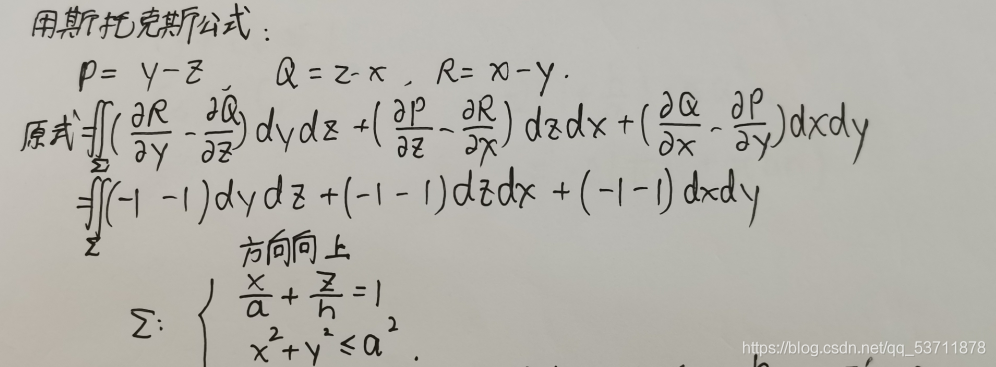 用斯托克斯公式：
P = y-z   Q = z-x , R = x-y .
原式=∬Σ(∂R/∂y - ∂Q/∂z)dydz + (∂P/∂z - ∂R/∂x)dzdx + (∂Q/∂x - ∂P/∂y)dxdy
=∬Σ(-1 -1)dydz + (-1-1)dzdx + (-1-1)dxdy
方向向上
Σ: { x/a + z/h = 1
x²+y²≤a² .
https://blog.csdn.net/qq_53711878